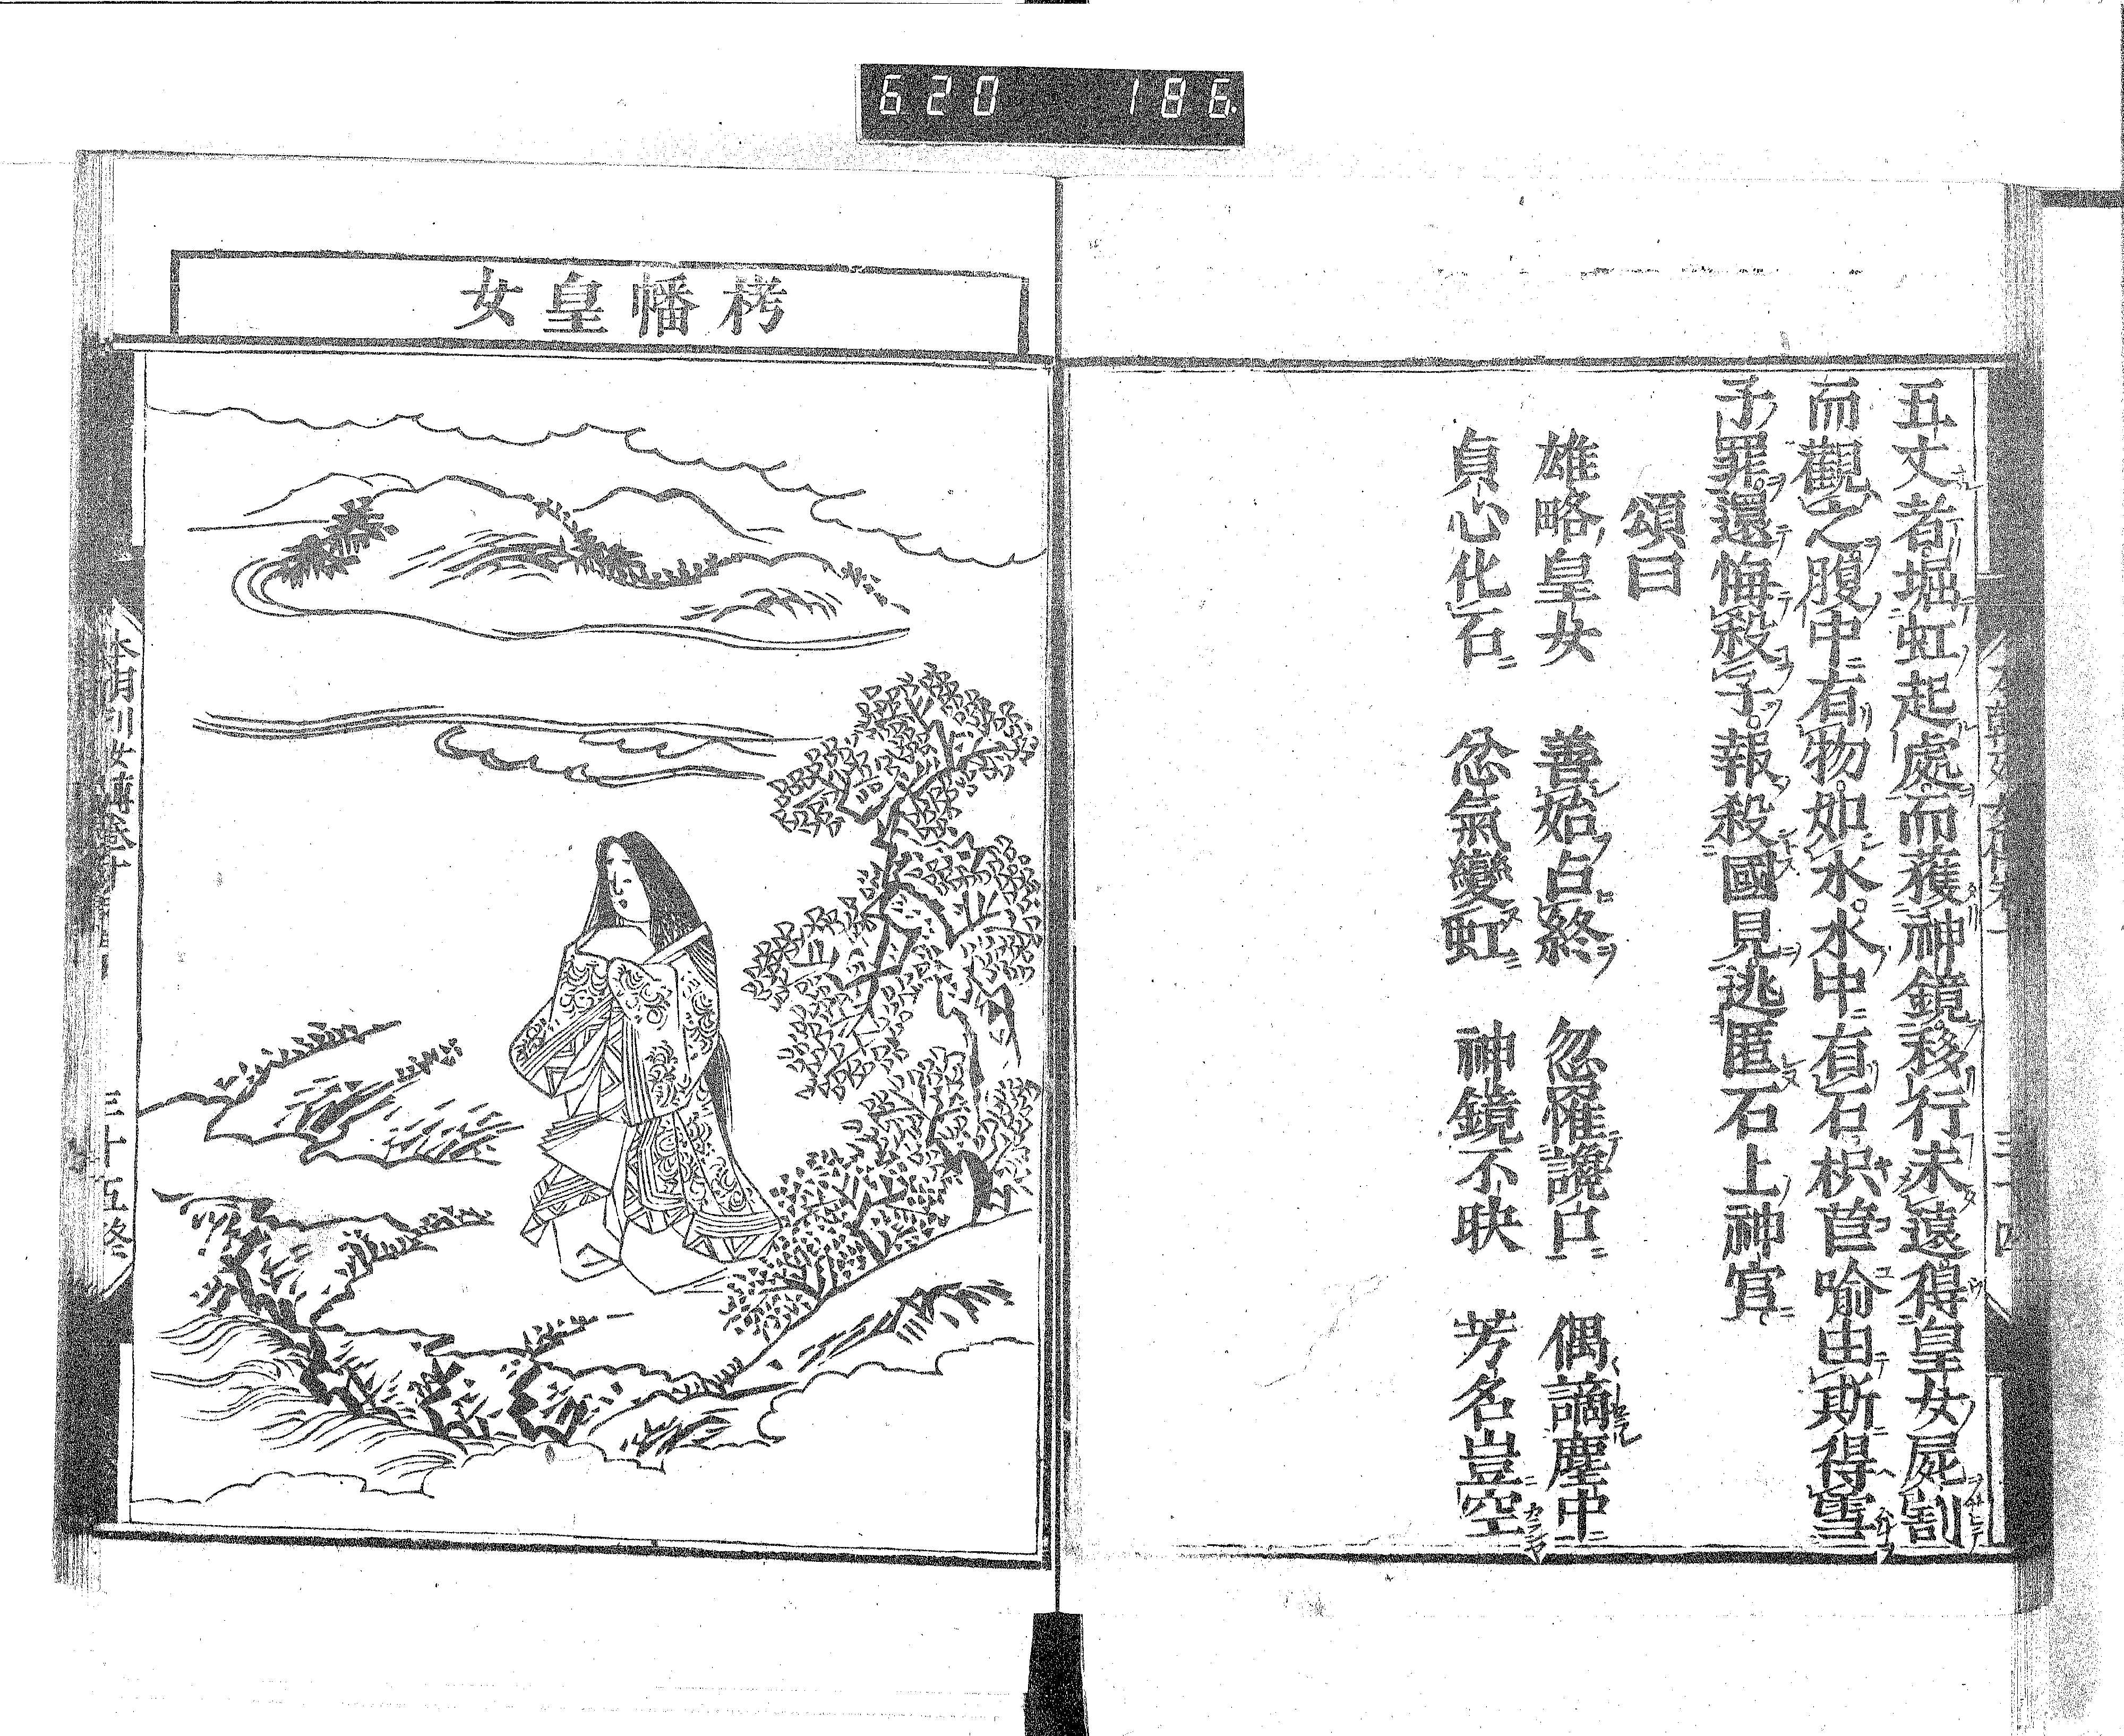 620 186
五丈者堀虹起處而獲神鏡移行未遠得皇女屍割
而觀之腹中有物如水水中有石枳莒喩由斯得雪
子罪還悔殺子報殺國見逃匿石上神宮
頌曰
雄略皇女 善始占終 忽罹讒口 偶謫塵中
貞心化石 忿氣變虹 神鏡不映 芳名豈空
栲幡皇女
三十五終